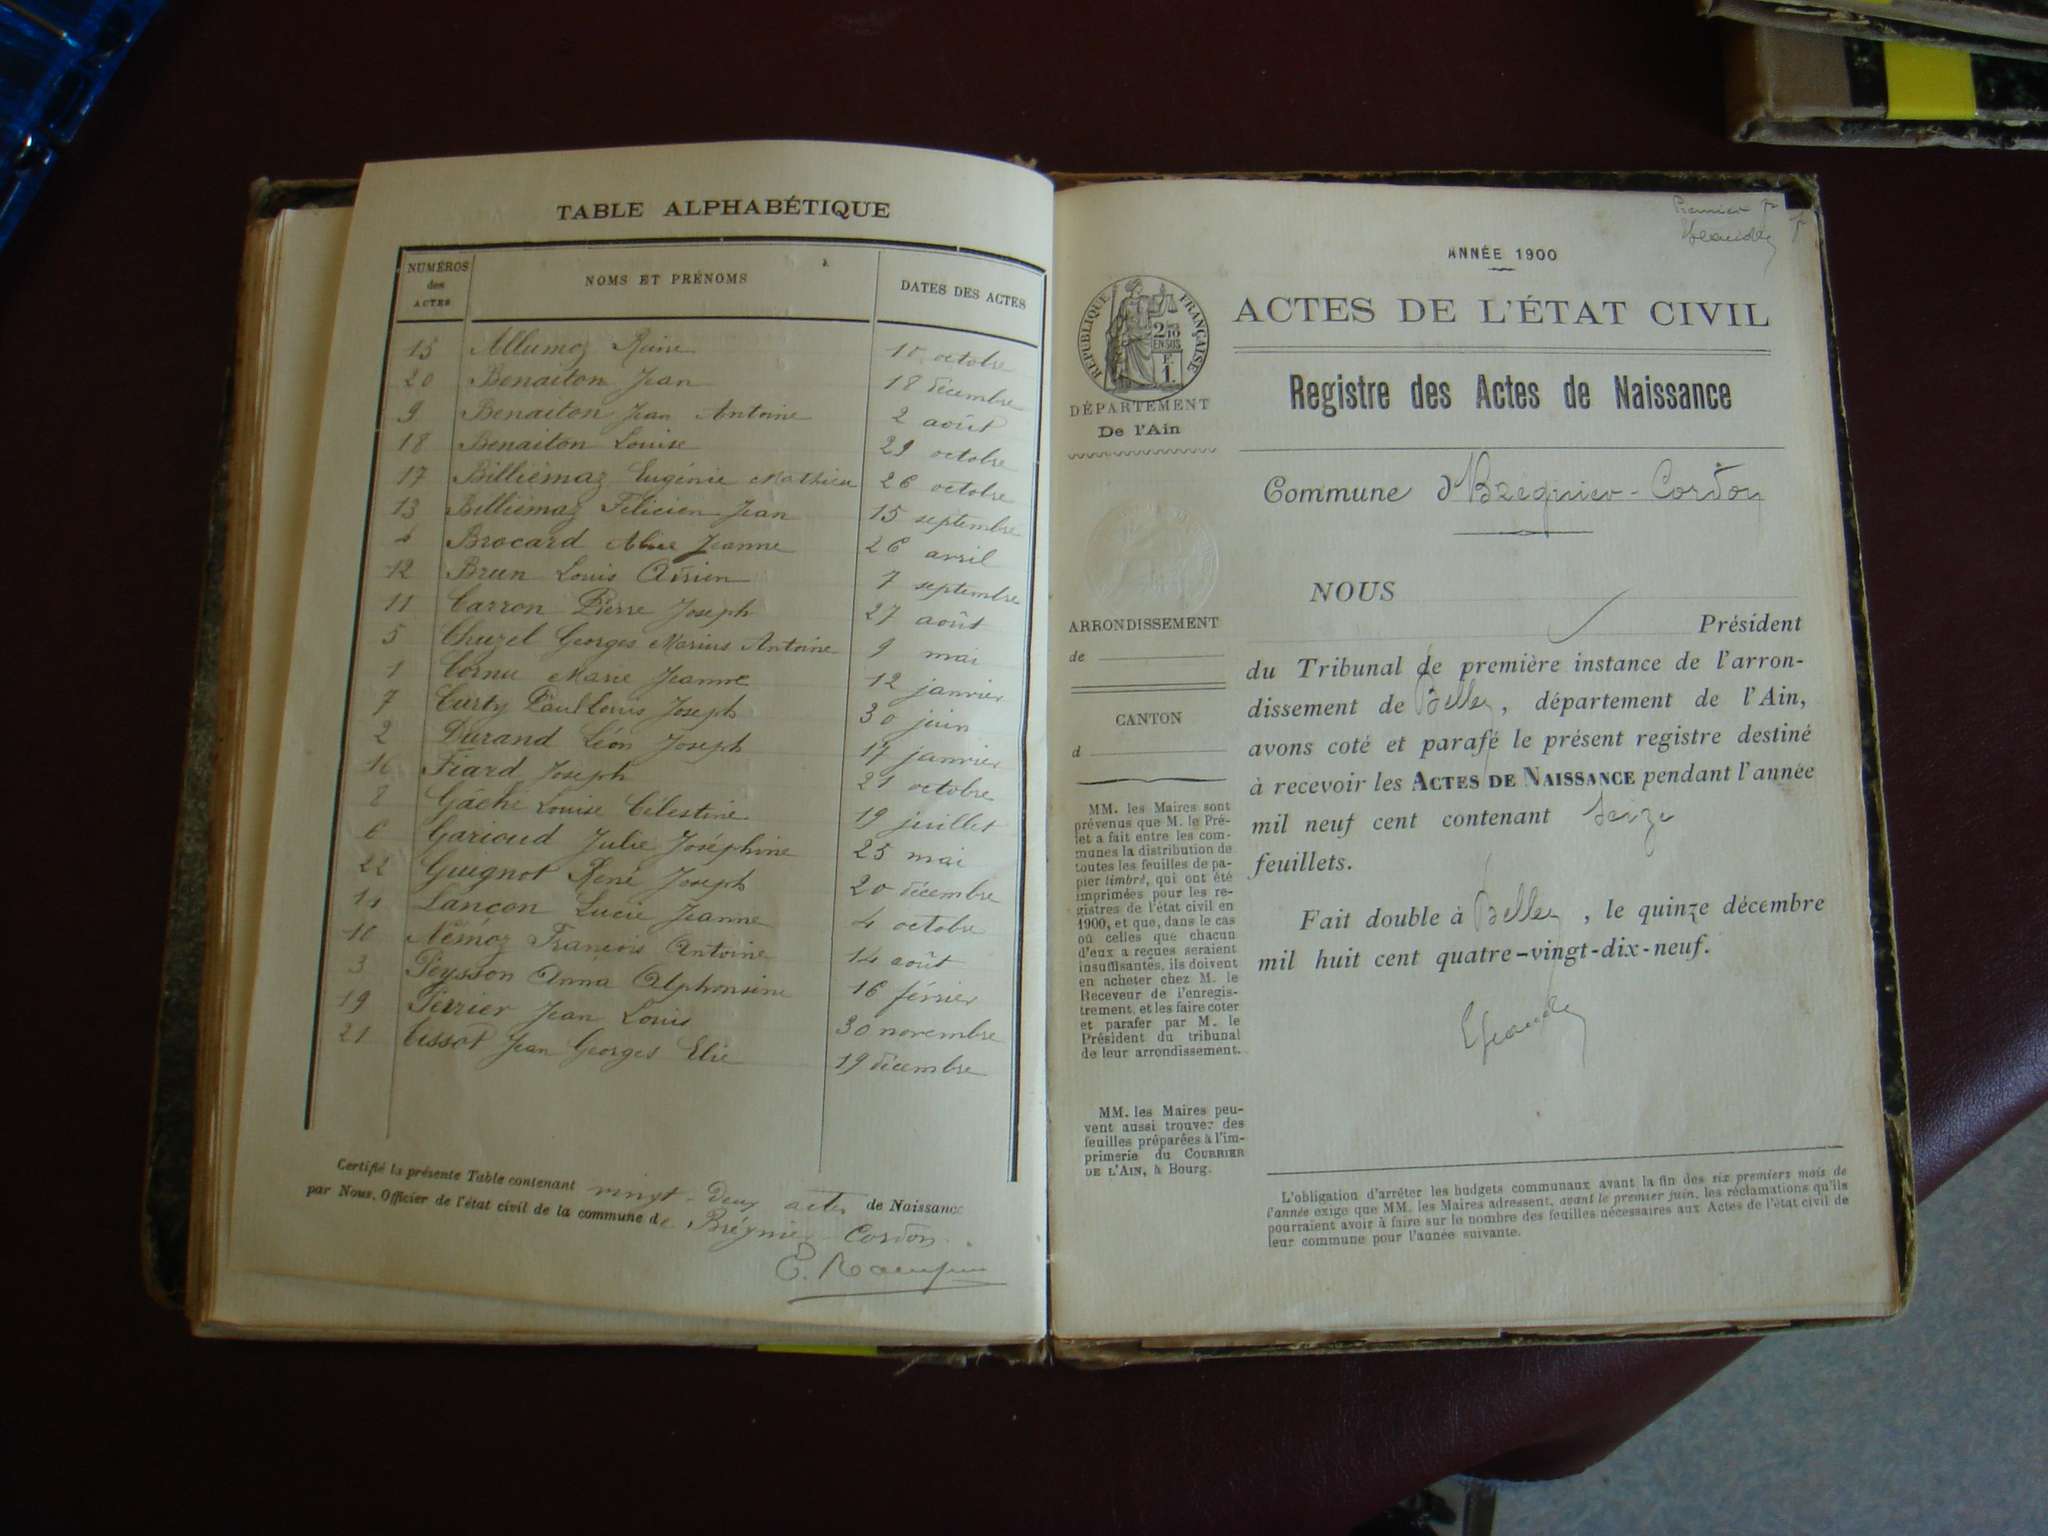 TABLE ALPHABÉTIQUE
NUMÉROS des ACTES NOMS ET PRÉNOMS DATES DES ACTES
15 Allumoz Reine 10 octobre
20 Benaiton Jean 18 décembre
9 Benaiton Jean Antoine 2 août
18 Benaiton Louise 29 octobre
17 Billiémaz Eugénie Mathieu 26 octobre
13 Billiémaz Félicien Jean 15 septembre
4 Brocard Alice Jeanne 26 avril
12 Brun Louis Adrien 7 septembre
11 Carron Pierre Joseph 27 août
5 Chuzel Georges Marius Antoine 9 mai
1 Cornu Marie Jeanne 12 janvier
7 Curty Paul Louis Joseph 30 juin
2 Durand Léon Joseph 17 janvier
16 Fiard Joseph 21 octobre
8 Gâche Louise Célestine 19 juillet
6 Garioud Julie Joséphine 25 mai
22 Guignot René Joseph 20 décembre
14 Lançon Lucie Jeanne 4 octobre
10 Némoz François Antoine 14 août
3 Peysson Anna Alphonsine 16 février
19 Perrier Jean Louis 30 novembre
21 Tissot Jean Georges Elie 19 décembre
Certifié la présente Table contenant vingt-deux actes de Naissance
par Nous, Officier de l'état civil de la commune de Brégnier-Cordon.
Premier
ANNÉE 1900
RÉPUBLIQUE FRANÇAISE
ACTES DE L'ÉTAT CIVIL
Registre des Actes de Naissance
DÉPARTEMENT
De l'Ain
Commune d Brégnier-Cordon
NOUS
Président
du Tribunal de première instance de l'arron-
dissement de Belley, département de l'Ain,
avons coté et parafé le présent registre destiné
à recevoir les ACTES DE NAISSANCE pendant l'année
mil neuf cent contenant seize
feuillets.
Fait double à Belley, le quinze décembre
mil huit cent quatre-vingt-dix-neuf.
ARRONDISSEMENT
de
CANTON
d
MM. les Maires sont
prévenus que M. le Pré-
fet a fait entre les com-
munes la distribution de
toutes les feuilles de pa-
pier timbré, qui ont été
imprimées pour les re-
gistres de l'état civil en
1900, et que, dans le cas
où celles que chacun
d'eux a reçues seraient
insuffisantes, ils doivent
en acheter chez M. le
Receveur de l'enregis-
trement, et les faire coter
et parafer par M. le
Président du tribunal
de leur arrondissement.
MM. les Maires peu-
vent aussi trouver des
feuilles préparées à l'im-
primerie du COURRIER
DE L'AIN, à Bourg.
L'obligation d'arrêter les budgets communaux avant la fin des six premiers mois de
l'année exige que MM. les Maires adressent, avant le premier juin, les réclamations qu'ils
pourraient avoir à faire sur le nombre des feuilles nécessaires aux Actes de l'état civil de
leur commune pour l'année suivante.